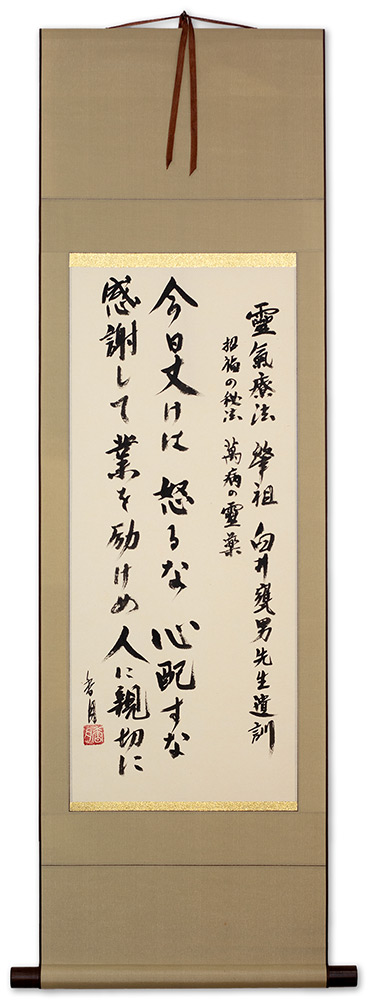 靈氣療法 肇祖 臼井甕男先生遺訓
招福の秘法 萬病の靈薬
今日丈けは 怒るな 心配すな
感謝して 業を励けめ 人に親切に